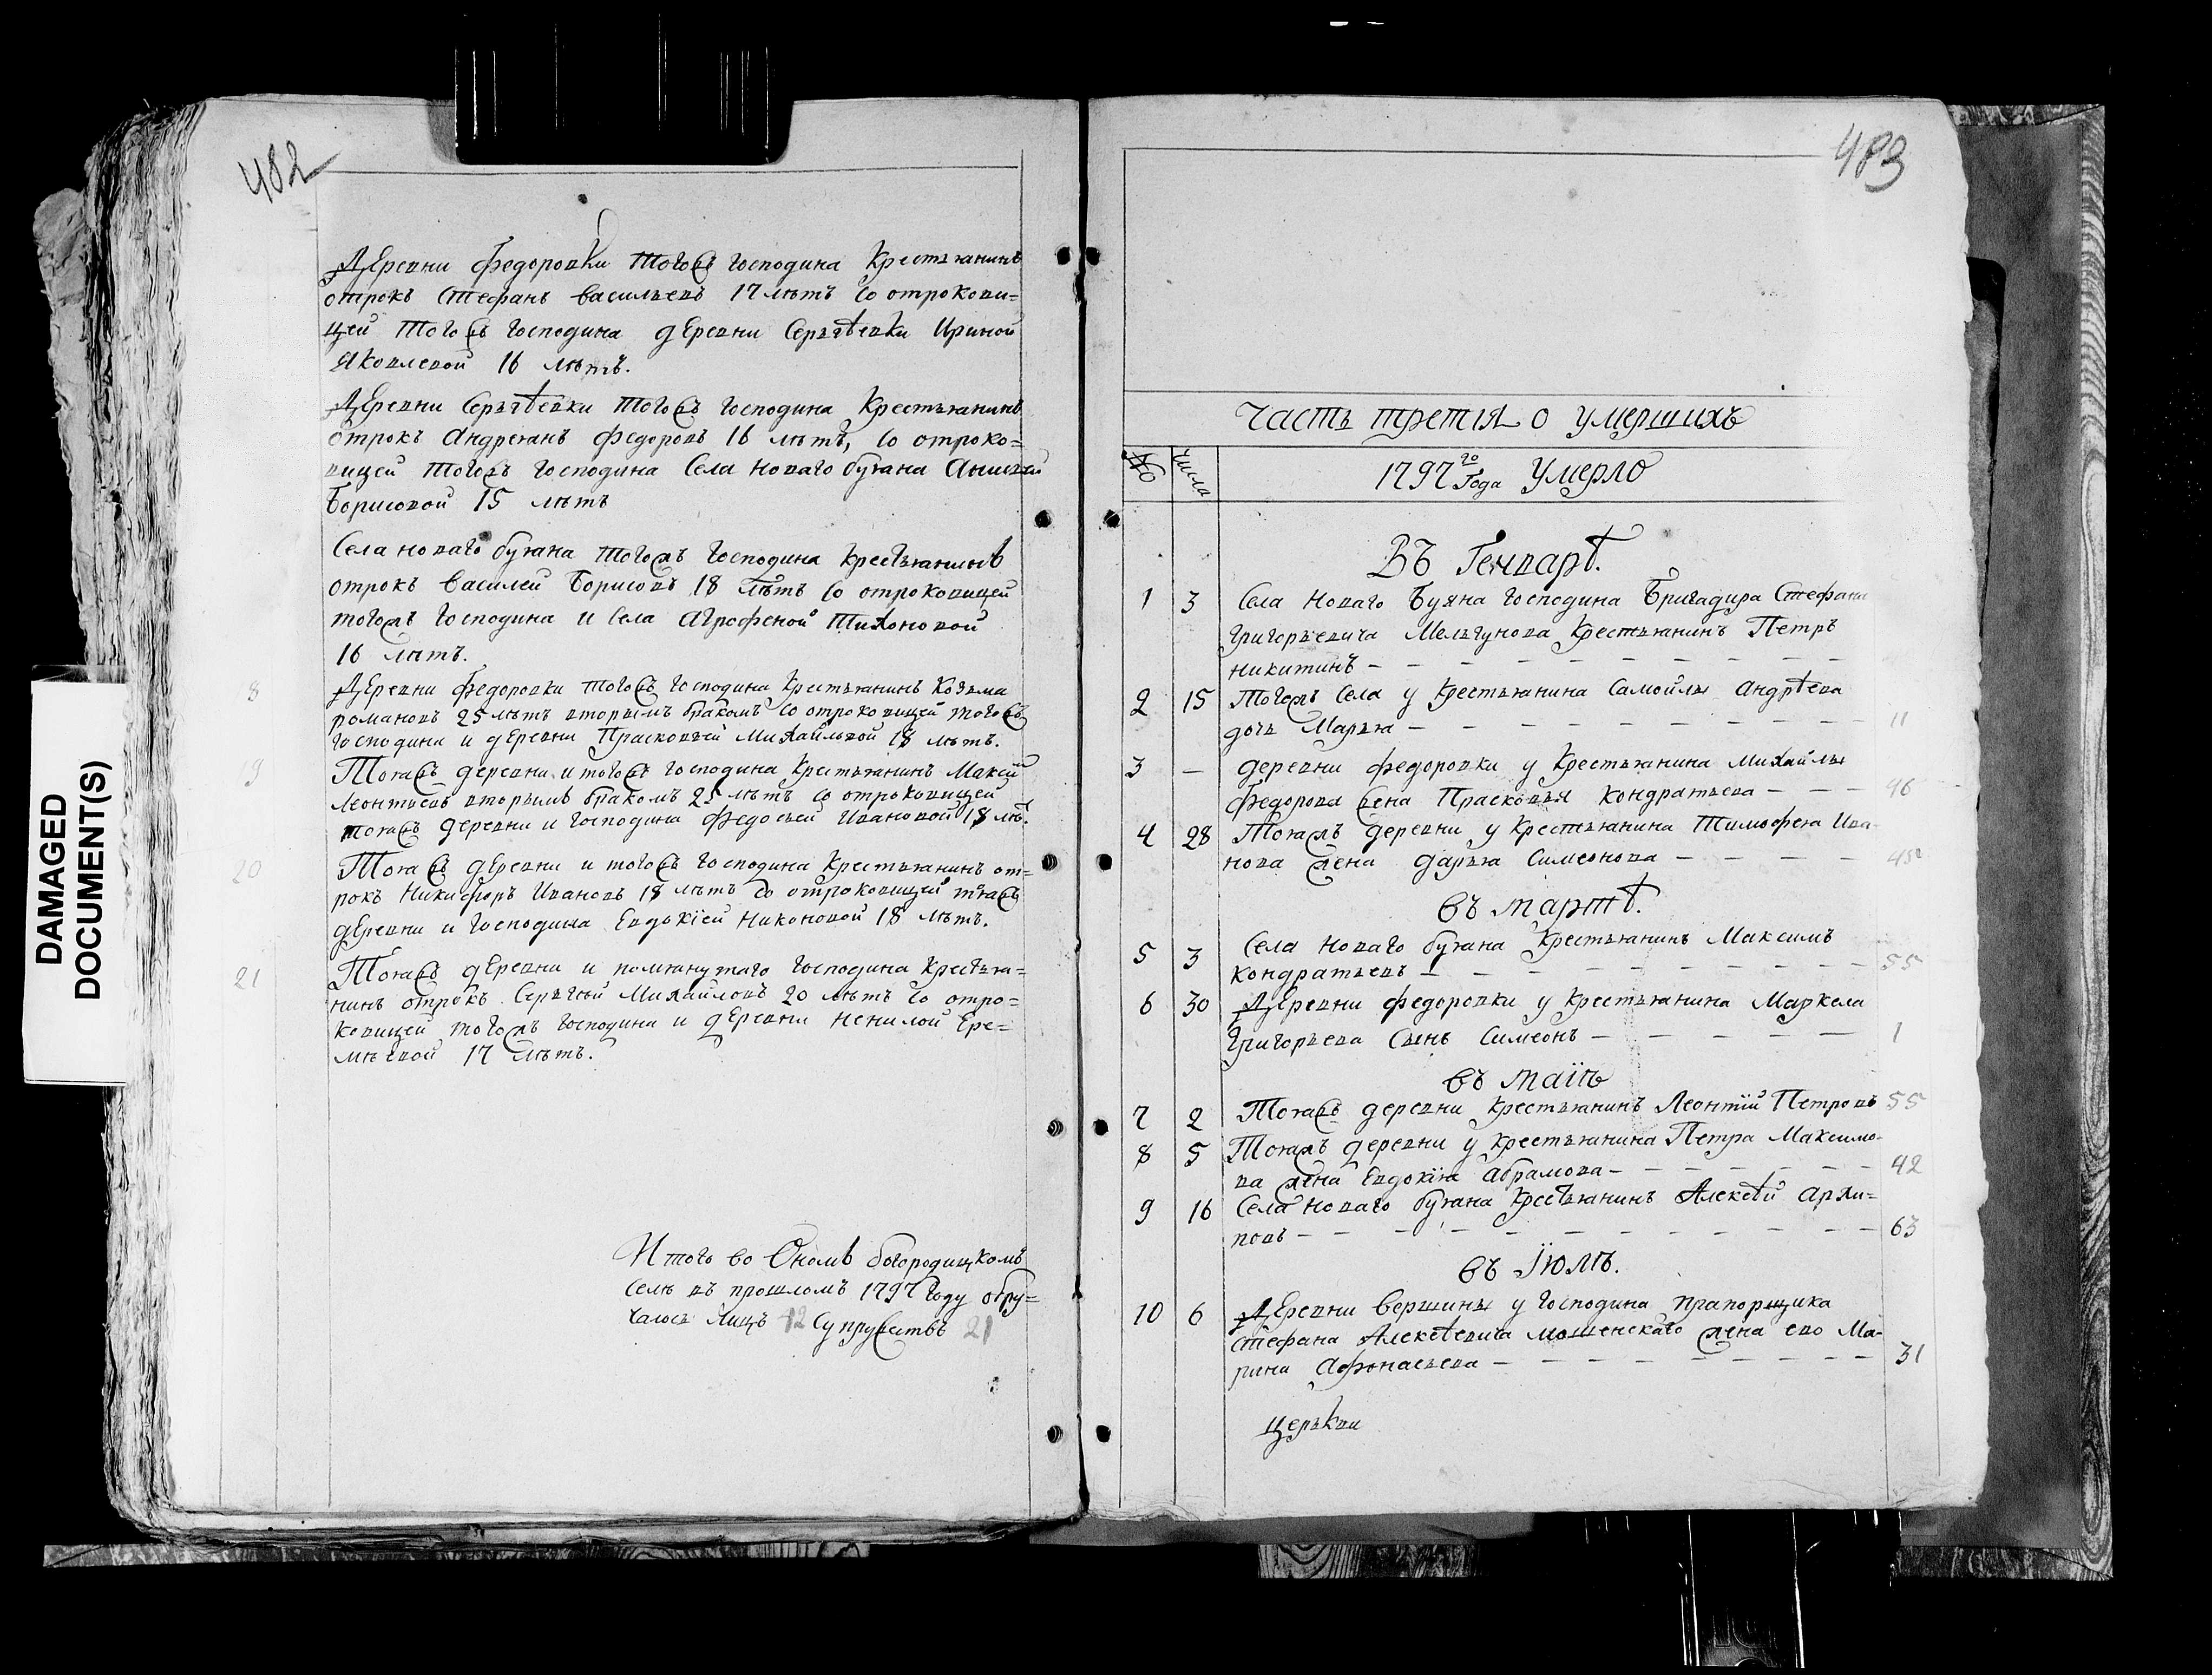 482
Деревни федоровки тогожъ господина Крестьянинъ
отрокъ Стефанъ васильевъ 17 лѣтъ со отрокови=
цей тогожъ господина деревни Сергѣевки Ириной
Яковлевой 16 лѣтъ.
Деревни Сергѣевки тогожъ господина Крестьянинъ
отрокъ андреянъ федоровъ 16 лѣтъ, со отроко=
вицей тогожъ господина Села новаго буяна
борисовой 15 лѣтъ
Села новаго буяна тогожъ господина крестьянинъ
отрокъ василей борисовъ 18 лѣтъ со отроковицей
тогожъ господина и Села агрофеной тихоновой
16 лѣтъ.
8 Деревни федоровки тогожъ господина крестьянинъ козьма
романовъ 25 лѣтъ вторымъ бракомъ со отроковицей тогожъ
господина и деревни Прасковьей Михайловой 18 лѣтъ.
19 Тояжъ деревни и тогожъ господина крестьянинъ Максим
леонтьевъ вторымъ бракомъ 25 лѣтъ со отроковицей
тояжъ деревни и господина федосьей ивановой 18 лѣт.
20 Тояжъ деревни и тогожъ господина крестьянинъ от=
рокъ Никифоръ Ивановъ 18 лѣтъ со отроковицей тояжъ
деревни и господина Евдокіей никоновой 18 лѣтъ.
21 Тояжъ деревни и помянутаго господина крестья=
нинъ отрокъ Сергѣй Михайловъ 20 лѣтъ со отро=
ковицей тогожъ господина и деревни ненилой Ере=
мѣевой 17 лѣтъ.
Итого во Ономъ богородицкомъ
селѣ въ прошломъ 1797 году обру=
чалось лицъ 42 супружествъ 21
DAMAGED
DOCUMENT(S)
483
Часть третія о умершихъ
№ числа 1797го Года Умерло
Въ Генварѣ.
1 3 Села новаго Буяна господина Бригадира Стефана
григорьевича Мельгунова крестьянинъ Петръ
никитинъ
2 15 Тогожъ Села у крестьянина Самойлы андрѣева
дочь Марья 11
3 — деревни федоровки у крестьянина михайлы
федорова жена Прасковья кондратьева 46
4 28 Тояжъ деревни у крестьянина Тимофея Ива-
нова жена дарья Симеонова
въ мартѣ.
5 3 Села новаго буяна крестьянинъ Максимъ
кондратьевъ 55
6 30 Деревни федоровки у крестьянина Маркела
григорьева Сынъ Симеонъ 1
въ маіѣ
7 2 Тояжъ деревни крестьянинъ Леонтій Петровъ 55
8 5 Тояжъ деревни у крестьянина Петра Максимо-
ва жена Евдокія абрамова 42
9 16 Села новаго буяна крестьянинъ Алексѣй архи=
повъ 63
въ Іюлѣ.
10 6 Деревни вершины у господина прапорщика
стефана Алексѣевича мошенскаго жена ево Ма-
рина Афонасьева 31
церькви